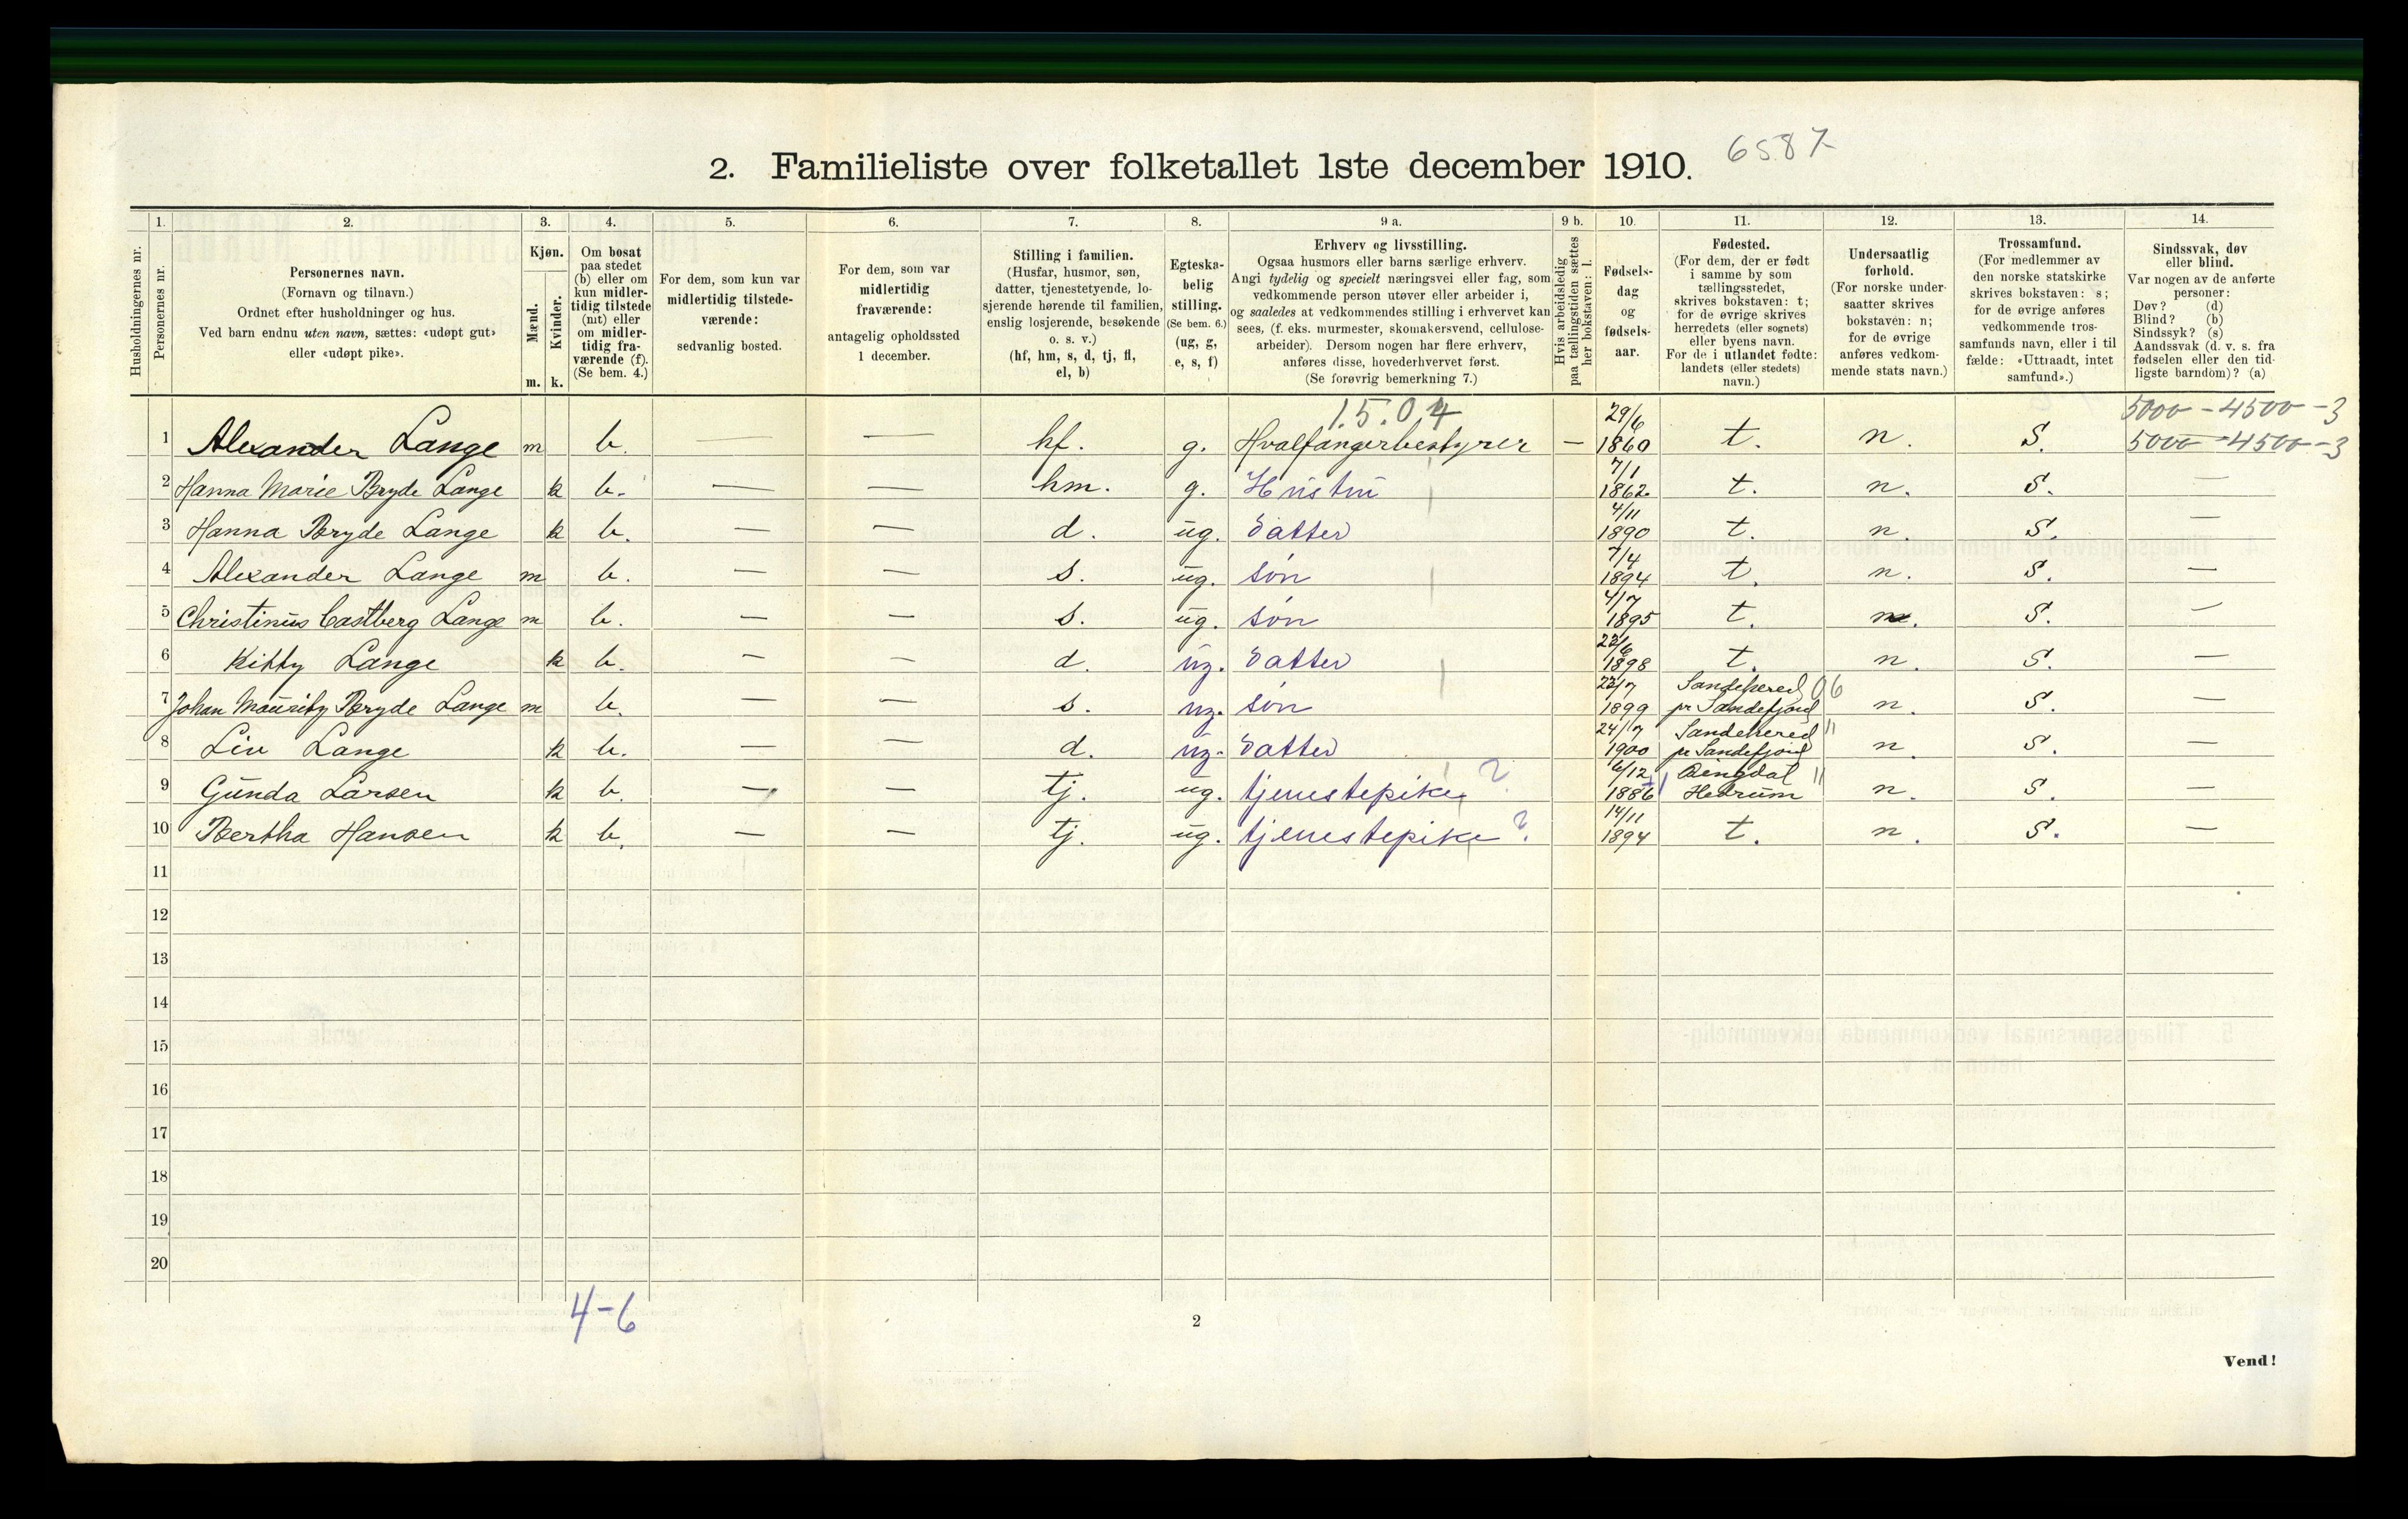 6587
2. Familieliste over folketallet 1ste december 1910.
Husholdningernes nr.
1. Personernes nr.
2. Personernes navn.
(Fornavn og tilnavn.)
Ordnet efter husholdninger og hus.
Ved barn endnu uten navn, sættes: «udøpt gut»
eller «udøpt pike».
3. Kjøn.
Mænd. m.
Kvinder. k.
4. Om bosat
paa stedet
(b) eller om
kun midler-
tidig tilstede
(mt) eller
om midler-
tidig fra-
værende (f).
(Se bem. 4.)
5. For dem, som kun var
midlertidig tilstede-
værende:
sedvanlig bosted.
6. For dem, som var
midlertidig
fraværende:
antagelig opholdssted
1 december.
7. Stilling i familien.
(Husfar, husmor, søn,
datter, tjenestetyende, lo-
sjerende hørende til familien,
enslig losjerende, besøkende
o. s. v.)
(hf, hm, s, d, tj, fl,
el, b)
8. Egteska-
belig
stilling.
(Se bem. 6.)
(ug, g,
e, s, f)
9 a. Erhverv og livsstilling.
Ogsaa husmors eller barns særlige erhverv.
Angi tydelig og specielt næringsvei eller fag, som
vedkommende person utøver eller arbeider i,
og saaledes at vedkommendes stilling i erhvervet kan
sees, (f. eks. murmester, skomakersvend, cellulose-
arbeider). Dersom nogen har flere erhverv,
anføres disse, hovederhvervet først.
(Se forøvrig bemerkning 7.)
9 b. Hvis arbeidsledig
paa tællingstiden sættes
her bokstaven: l.
10. Fødsels-
dag
og
fødsels-
aar.
11. Fødested.
(For dem, der er født
i samme by som
tællingsstedet,
skrives bokstaven: t;
for de øvrige skrives
herredets (eller sognets)
eller byens navn.
For de i utlandet fødte:
landets (eller stedets)
navn.)
12. Undersaatlig
forhold.
(For norske under-
saatter skrives
bokstaven: n;
for de øvrige
anføres vedkom-
mende stats navn.)
13. Trossamfund.
(For medlemmer av
den norske statskirke
skrives bokstaven: s;
for de øvrige anføres
vedkommende tros-
samfunds navn, eller i til
fælde: «Uttraadt, intet
samfund».)
14. Sindssvak, døv
eller blind.
Var nogen av de anførte
personer:
Døv? (d)
Blind? (b)
Sindssyk? (s)
Aandssvak (d. v. s. fra
fødselen eller den tid-
ligste barndom)? (a)
1.5.04
5000 - 4500 - 3
1 Alexander Lange m b. — — hf. g. Hvalfangerbestyrer — 29/6 1860 t. n. S. 5000 - 4500 - 3
2 Hanna Marie Bryde Lange k b. — — hm. g. Hustru 7/1 1862 t. n. S. —
3 Hanna Bryde Lange k b. — — d. ug. datter 4/11 1890 t. n. S. —
4 Alexander Lange m b. — — s. ug. søn 7/4 1894 t. n. S. —
5 Christinus Castberg Lange m b. — — s. ug. søn 4/7 1895 t. n. S. —
6 Kitty Lange k b. — — d. ug. datter 1898 t. n. S. —
7 Johan Mauritz Bryde Lange m b. — — s. ug. søn 1899 Sandehered pr Sandefjord 06 n. S. —
8 Liv Lange k b. — — d. ug. datter 24/7 1900 Sandehered pr Sandefjord " n. S. —
9 Gunda Larsen k b. — — tj. ug. tjenestepike ? 6/12 1886 Hedrum " n. S. —
10 Bertha Hansen k b. — — tj. ug. tjenestepike ? 14/11 1894 t. n. S. —
11
12
13
14
15
16
17
18
19
20
4-6
2
Vend!